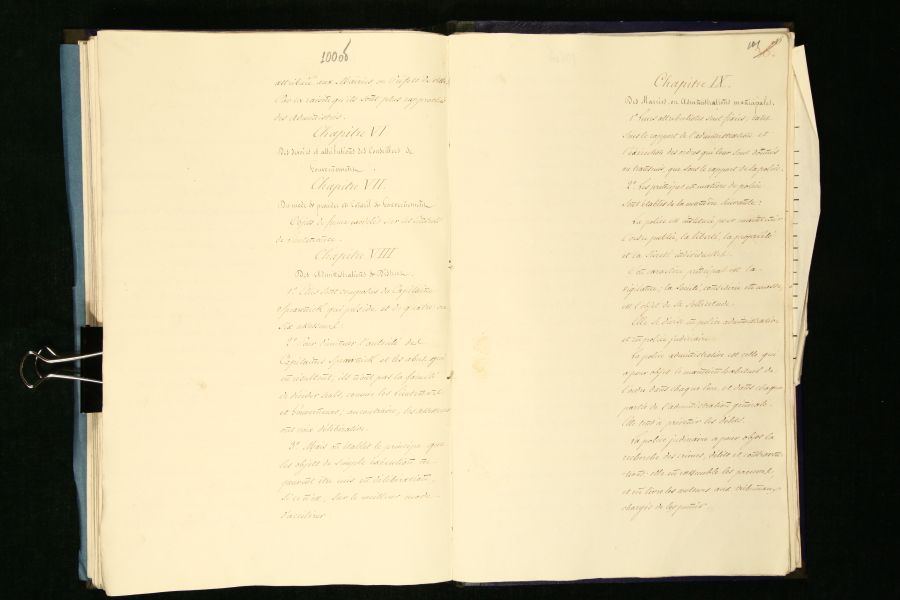 10006
attribués aux Maires ou Préfets de ville,
Par la raison qu'ils sont plus rapprochés
des Administrés.
Chapitre VI
Des devoirs et attributions des Conseillers de
Gouvernement.
Chapitre VII
Du mode de procéder en Conseil de Gouvernement
Objets de forme
de
Chapitre VIII
Des Administrations de District.
1° Elles sont composées du Capitaine
Ispravnick qui préside, et de quatre ou
six assesseurs.
2° Pour diminuer l'autorité des
Capitaines Ispravnick et les abus qui
en résultent, ils n'ont pas la faculté
de décider seuls, comme les
et Gouverneurs; au contraire, les assesseurs
ont voix délibérative.
3° Mais on établit le principe que
les objets de simple exécution ne
peuvent être mis en délibération,
si ce n'est, sur le meilleur mode
d'exécuter
Chapitre IX.
Des Mairies, ou Administrations municipales.
1° Leurs attributions sont fixées, tant
sous le rapport de l'administration et
l'exécution des ordres qui leur sont donnés
ou transmis, que sous le rapport de la police.
2° Les principes en matière de police
sont établis de la manière suivante:
La police est instituée pour maintenir
l'ordre public, la liberté, la propriété
et la sûreté individuelle.
Son caractère principal est la
vigilance; la société, considérée en masse,
est l'objet de sa sollicitude.
Elle se divise en police administrative
et en police judiciaire.
La police administrative est celle qui
a pour objet le maintien habituel de
l'ordre dans chaque lieu, et dans chaque
partie de l'administration générale.
Elle tend à prévenir les délits.
La police judiciaire a pour objet la
recherche des crimes, délits et contraven-
tions: elle en rassemble les preuves,
et en livre les auteurs aux tribunaux
chargés de les punir.